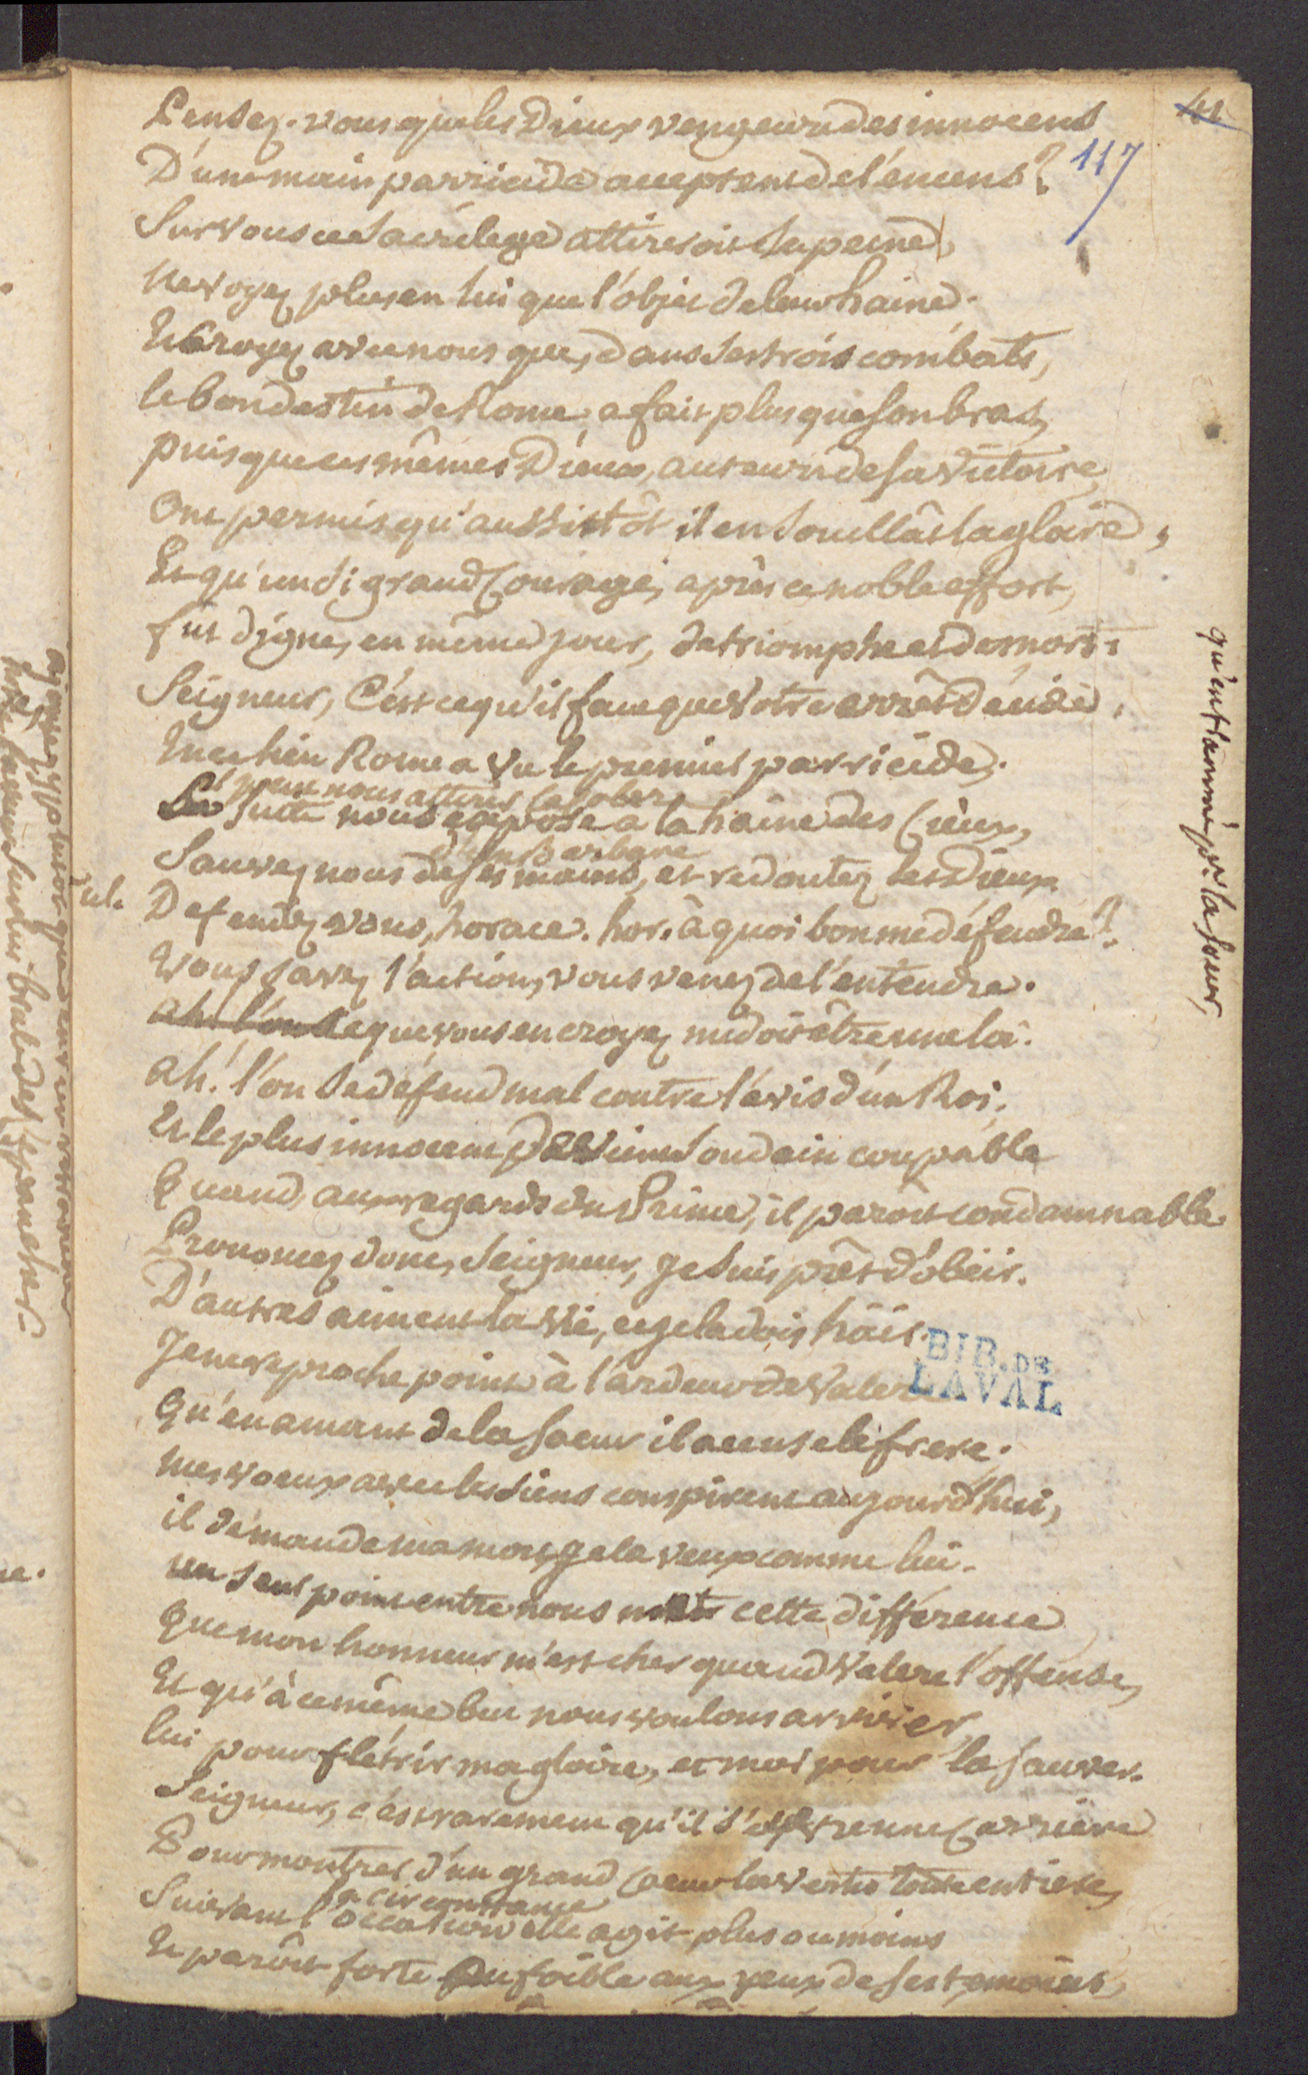 41
117
Pensez-vous que les Dieux vengeurs des innocens
D'une main parricide acceptent de l'encens?
Sur vous ce sacrilege attireroit sa peine,
Ne voyez plus en lui que l'objet de leur haine.
Et croyez avec nous que, dans ses trois combats,
le bon destin de Rome, a fait plus que son bras,
puisque ces mêmes Dieux, auteurs de sa victoire,
Ont permis qu'aussitôt il en souillât la gloire,
Et qu'un si grand Courage, après ce noble effort,
fut digne, en même jour, de triomphe et de mort.
Seigneur, C'est ce qu'il faut que votre arrêt décide,
En ce lieu Rome a vu le premier parricide,
La suite nous expose a la haine des Cieux,
d'un Barbare
Sauvez nous de ses mains, et redoutez les Dieux
tul. Défendez vous, horace. hor. à quoi bon me défendre?
Vous savez l'action, vous venez de l'entendre.
ah! l'on se que vous en croyez me doit être une loi.
ah! l'on se défend mal contre l'avis d'un Roi,
Et le plus innocent devient soudain coupable
Quand, aux regards du Prince, il paroit condamnable
Prononcez donc, Seigneur, je suis prêt d'obéir.
D'autres aiment la vie, et je la dois haïr.
Je ne reproche point à l'ardeur de Valere
Qu'en amant de la soeur il accuse le frere.
mes voeux avec les siens conspirent aujourd'hui,
il demande ma mort, je la veux comme lui.
un seul point entre nous met cette différence
Que mon honneur m'est cher quand Valere l'offense,
Et qu'à ce même but nous voulons arriver
lui pour flétrir ma gloire, et moi pour la sauver.
Seigneur, c'est rarement qu'il s'offre une Carriere
Pour montrer d'un grand Coeur la vertu toute entiere,
a circonstance
Suivant l'occasion elle agit plus ou moins
Et paroît forte ou foible aux yeux de ses temoins,
qu'entlammé pr. la soeur,
BIB. DE
LAVAL